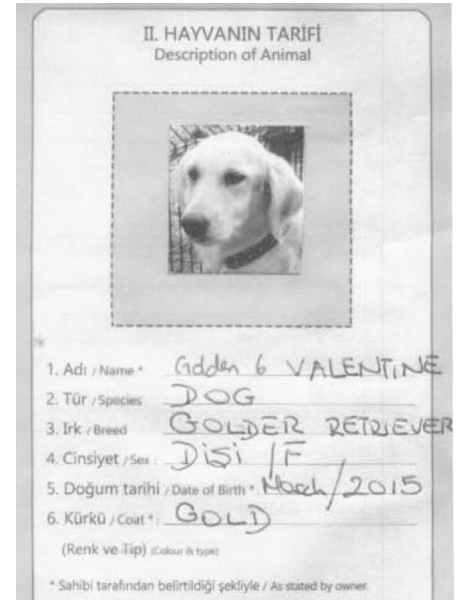 II. HAYVANIN TARİFİ
Description of Animal
1. Adı / Name * Golden 6 VALENTINE
2. Tür / Species DOG
3. Irk / Breed GOLDER RETRIEVER
4. Cinsiyet / Sex : DİŞİ / F
5. Doğum tarihi / Date of Birth * March / 2015
6. Kürkü / Coat * : GOLD
(Renk ve Tip) (Colour & type)
* Sahibi tarafından belirtildiği şekliyle / As stated by owner.